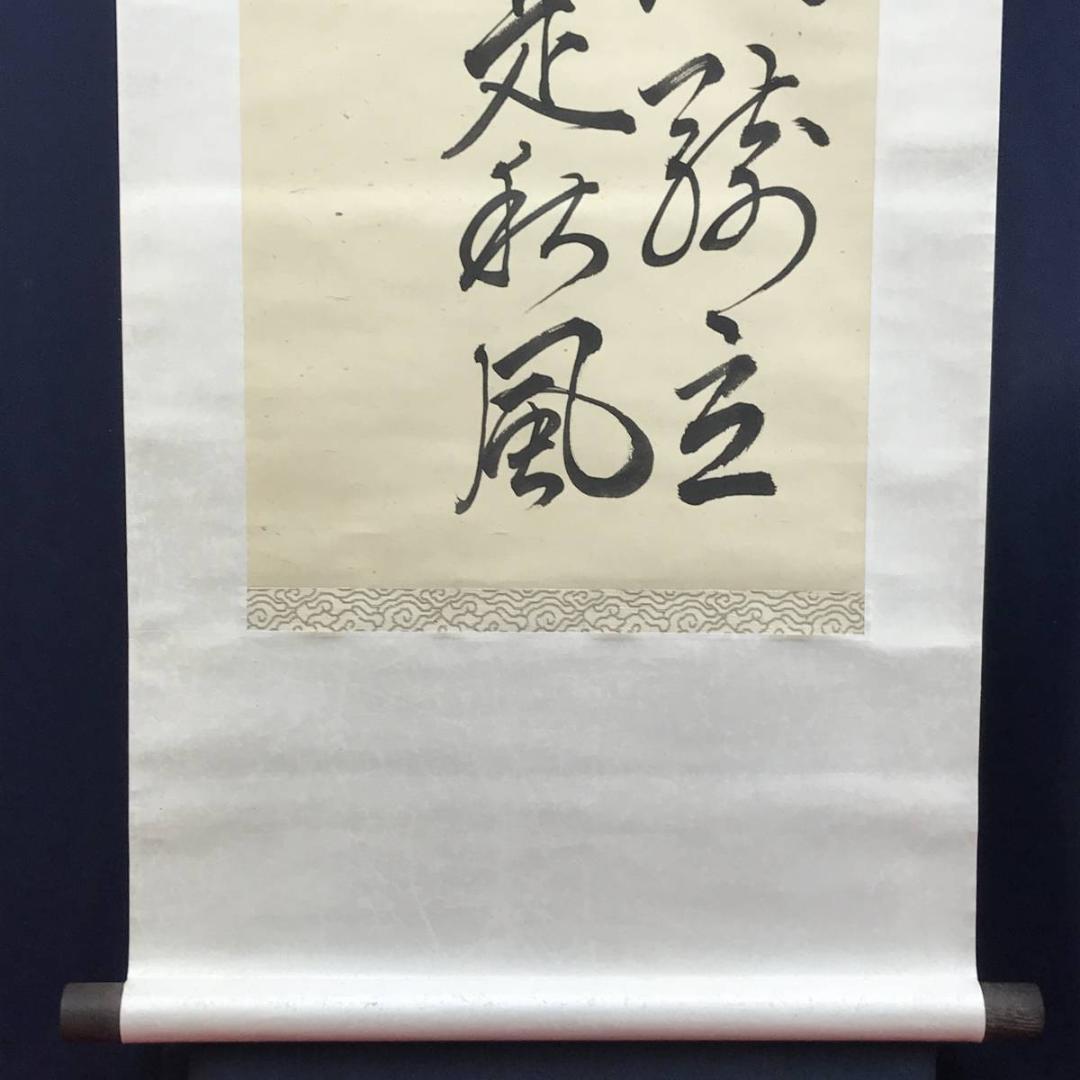 騎立
是秋風